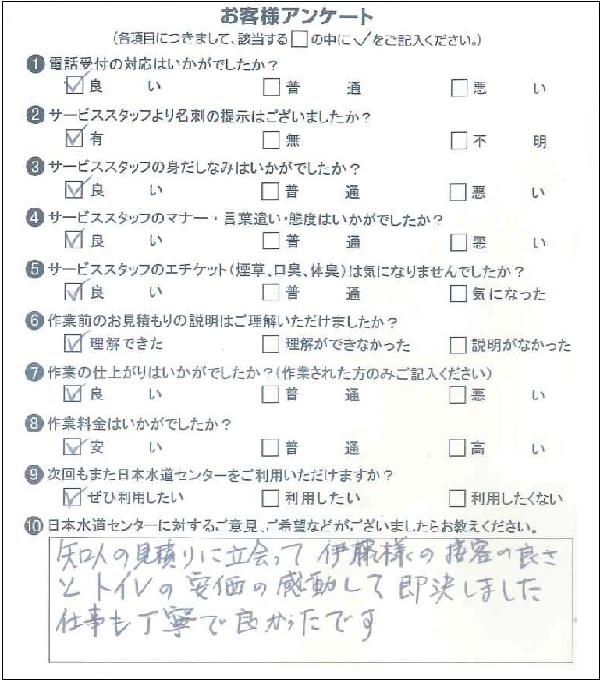 お客様アンケート
(各項目につきまして、該当する□の中に✓をご記入ください。)
❶ 電話受付の対応はいかがでしたか?
☑ 良 い □ 普 通 □ 悪 い
❷ サービススタッフより名刺の提示はございましたか?
☑ 有 □ 無 □ 不 明
❸ サービススタッフの身だしなみはいかがでしたか?
☑ 良 い □ 普 通 □ 悪 い
❹ サービススタッフのマナー・言葉遣い・態度はいかがでしたか?
☑ 良 い □ 普 通 □ 悪 い
❺ サービススタッフのエチケット(煙草、口臭、体臭)は気になりませんでしたか?
☑ 良 い □ 普 通 □ 気になった
❻ 作業前のお見積もりの説明はご理解いただけましたか?
☑ 理解できた □ 理解ができなかった □ 説明がなかった
❼ 作業の仕上がりはいかがでしたか?(作業された方のみご記入ください)
☑ 良 い □ 普 通 □ 悪 い
❽ 作業料金はいかがでしたか?
☑ 安 い □ 普 通 □ 高 い
❾ 次回もまた日本水道センターをご利用いただけますか?
☑ ぜひ利用したい □ 利用したい □ 利用したくない
❿ 日本水道センターに対するご意見、ご希望などがございましたらお教えください。
知人の見積りに立会って 伊藤様の接客の良さ
と トイレの 安価の感動して 即決しました
仕事も丁寧で良かったです